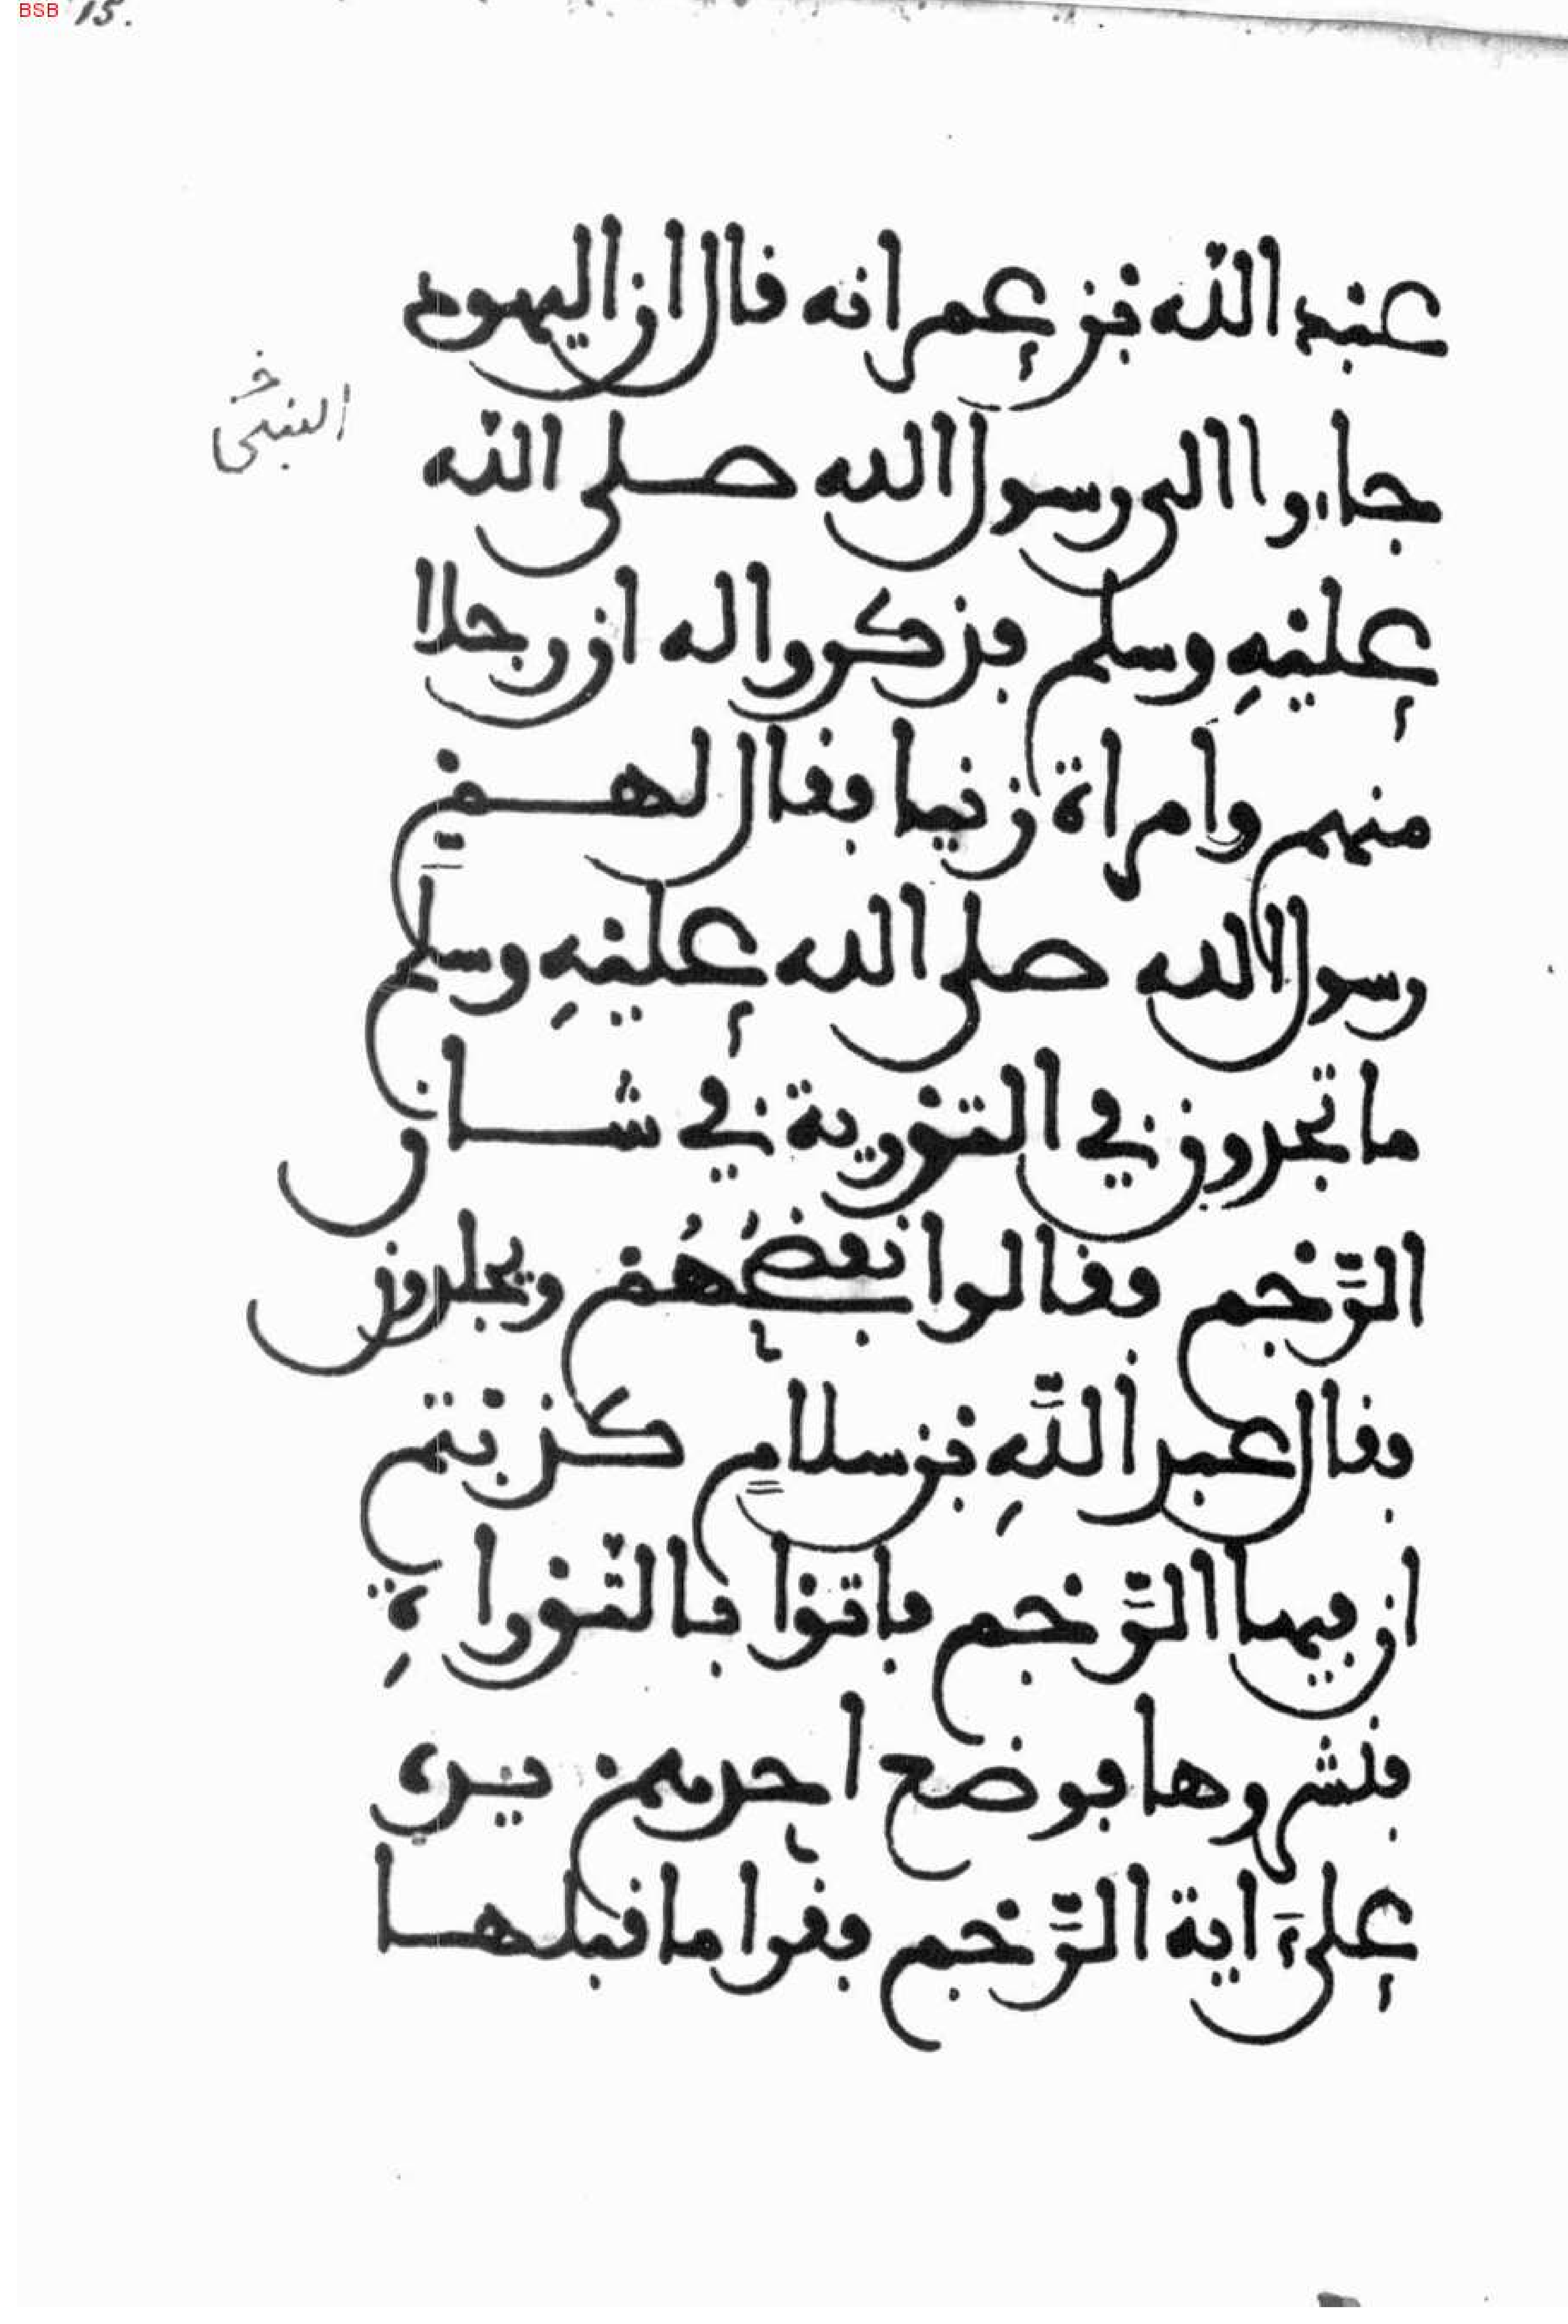 BSB 15.
عبد الله بن عمر انه قال ان اليهود
النبي خ
جاءوا الى رسول الله صلى الله
عليه وسلم فذكروا له ان رجلا
منهم وامراة زنيا فقال لهم
رسول الله صلى الله عليه وسلم
ما تجدون في التورية في شان
الرجم فقالوا نفضحهم ويجلدون
فقال عبد الله بن سلام كذبتم
ان فيها الرجم فاتوا بالتوراة
فنشروها فوضع احدهم يده
على ءاية الرجم فقرا ما قبلها